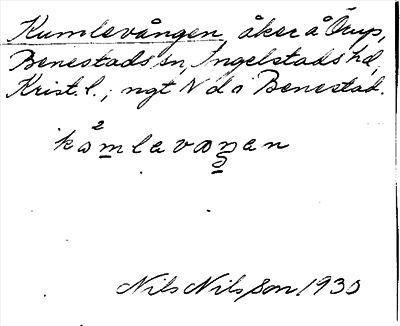 Kumlevången, åker å Örup,
Benestads sn, Ingelstads hd,
Krist. l.; ngt N d o Benestad.
kå²mlavaŋan
Nils Nilsson 1930